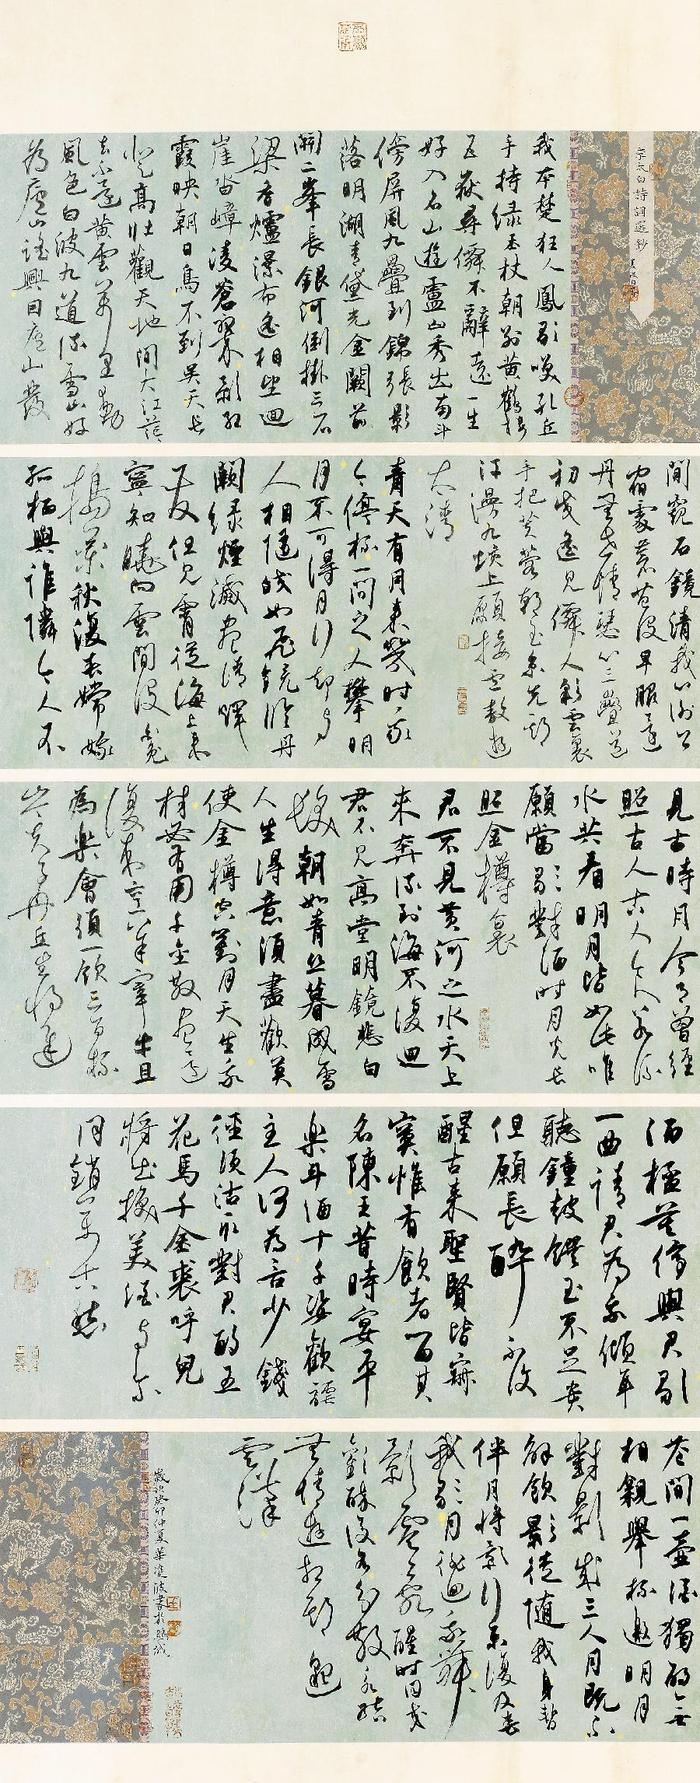 李太白詩詞選鈔
我本楚狂人鳳歌笑孔丘
手持绿玉杖朝别黄鶴楼
五嶽尋僊不辭遠一生
好入名山遊廬山秀出南斗
傍屏風九疊雲錦張影
落明湖青黛光金闕前
開二峯長銀河倒掛三石
梁香爐瀑布遙相望迴
崖沓嶂凌蒼翠影紅
霞映朝日鳥不到吳天長
登高壯觀天地間大江茫
去不還黄雲萬里動
風色白波九道流雪山好
為廬山謠興因廬山發
閒窺石鏡清我心謝公
宿處蒼苔沒早服還
丹無世情琴心三疊道
初成遙見僊人彩雲裏
手把芙蓉朝玉京先期
汗漫九垓上願接盧敖遊
太清
青天有月来幾時我
今停杯一問之人攀明
月不可得月行却与
人相隨皎如飛鏡臨丹
闕绿煙滅盡清輝
發但見宵從海上来
寧知曉向雲間沒兔
搗藥秋復春嫦娥
孤栖與誰鄰今人不
見古時月今月曾經
照古人古人今人若流
水共看明月皆如此唯
願當歌對酒時月光長
照金樽裏
君不見黄河之水天上
来奔流到海不復迴
君不見高堂明鏡悲白
髮朝如青丝暮成雪
人生得意須盡歡莫
使金樽空對月天生我
材必有用千金散盡還
復来烹羊宰牛且
為樂會須一飲三百杯
岑夫子丹丘生將進
酒杯莫停與君歌
一曲請君為我傾耳
聽鐘鼓饌玉不足貴
但願長醉不復
醒古来聖賢皆寂
寞惟有飲者留其
名陳王昔時宴平
樂斗酒十千恣歡謔
主人何為言少錢
徑須沽取對君酌五
花馬千金裘呼兒
將出換美酒与尔
同銷萬古愁
花間一壺酒獨酌無
相親舉杯邀明月
對影成三人月既不
解飲影徒隨我身暫
伴月將影行樂須及春
我歌月徘徊我舞
影零亂醒時同交
歡醉後各分散永結
無情遊相期邈
雲漢